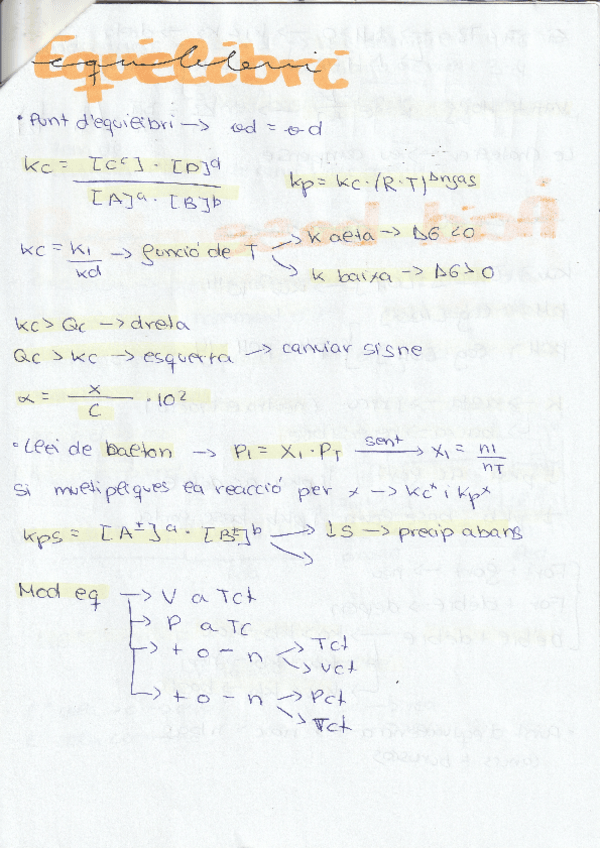 Equilibri
• Punt d'equilibri → vd = vd
Kc = [C]ᶜ · [D]ᵈ / [A]ᵃ · [B]ᵇ
Kp = Kc · (R·T)^Δngas
Kc = Ki / Kd → funció de T → K alta → ΔG < 0
→ K baixa → ΔG > 0
Kc > Qc → dreta
Qc > Kc → esquerra → canviar signe
α = x / C · 10²
• Llei de Dalton → Pi = Xi · PT → sent Xi = ni / nT
Si multipliques la reacció per x → Kcˣ i Kpˣ
Kps = [A±]ᵃ · [B±]ᵇ → ↓S → precip abans
Mod eq → V a Tct
→ P a Tc
→ + o - n → Tct
→ Vct
→ + o - n → Pct
→ Tct